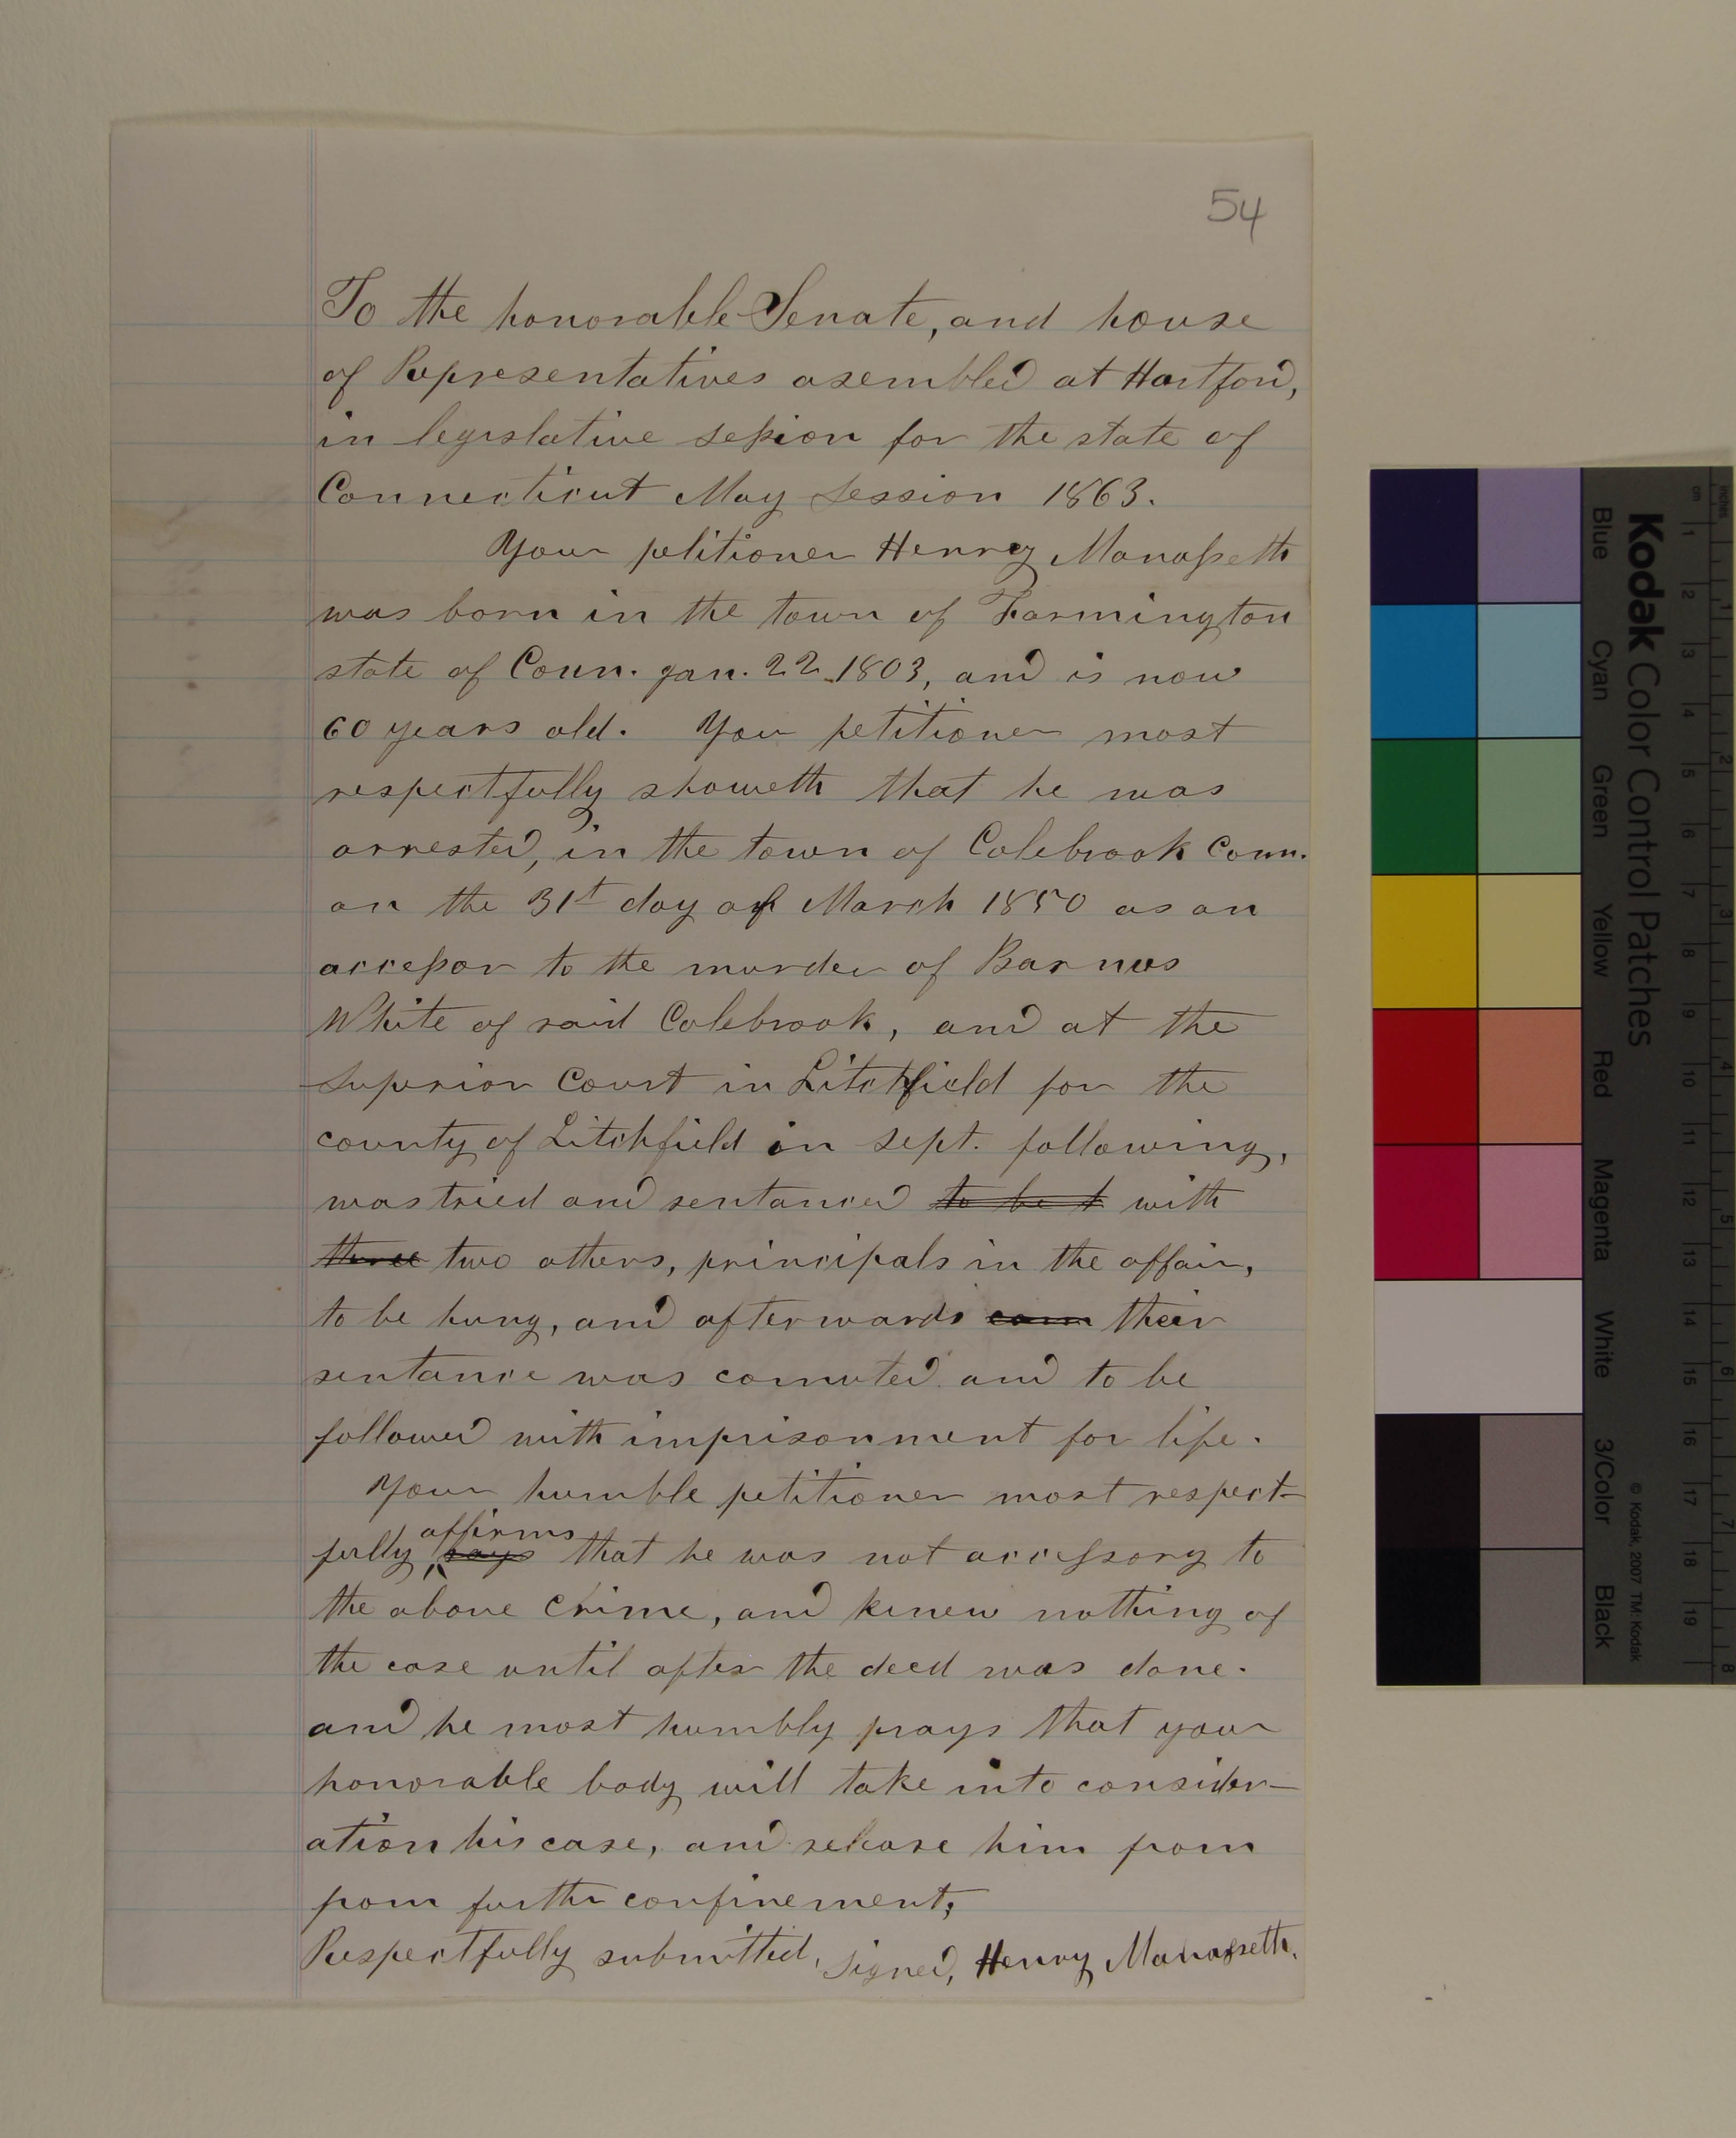 54
To the honorable Senate, and house
of Representatives asembled at Hartford,
in legislative session for the state of
Connecticut May Session 1863.
Your petitioner Henry Manasseth
was born in the town of Farmington
state of Conn. jan. 22. 1803, and is now
60 years old. You petitioner most
respectfully showeth that he was
arrested, in the town of Colebrook Conn.
on the 31st day of March 1850 as an
accessor to the murder of Barnus
White of said Colebrook, and at the
superior Court in Litchfield for the
county of Litchfield in sept. following,
was tried and sentanced to be t with
three two others, principals in the affair,
to be hung, and afterwards com their
sentance was comuted and to be
followed with imprisonment for life.
Your humble petitioner most respect-
fully says affirms that he was not accessory to
the above crime, and knew nothing of
the case until after the deed was done.
and he most humbly prays that your
honorable body will take into consider-
ation his case, and release him from
from further confinement,
Respectfully submitted, signed, Henry Manasseth.
Kodak Color Control Patches
Blue Cyan Green Yellow Red Magenta White 3/Color Black
© Kodak, 2007 TM: Kodak
cm 1 2 3 4 5 6 7 8 9 10 11 12 13 14 15 16 17 18 19
inches 1 2 3 4 5 6 7 8